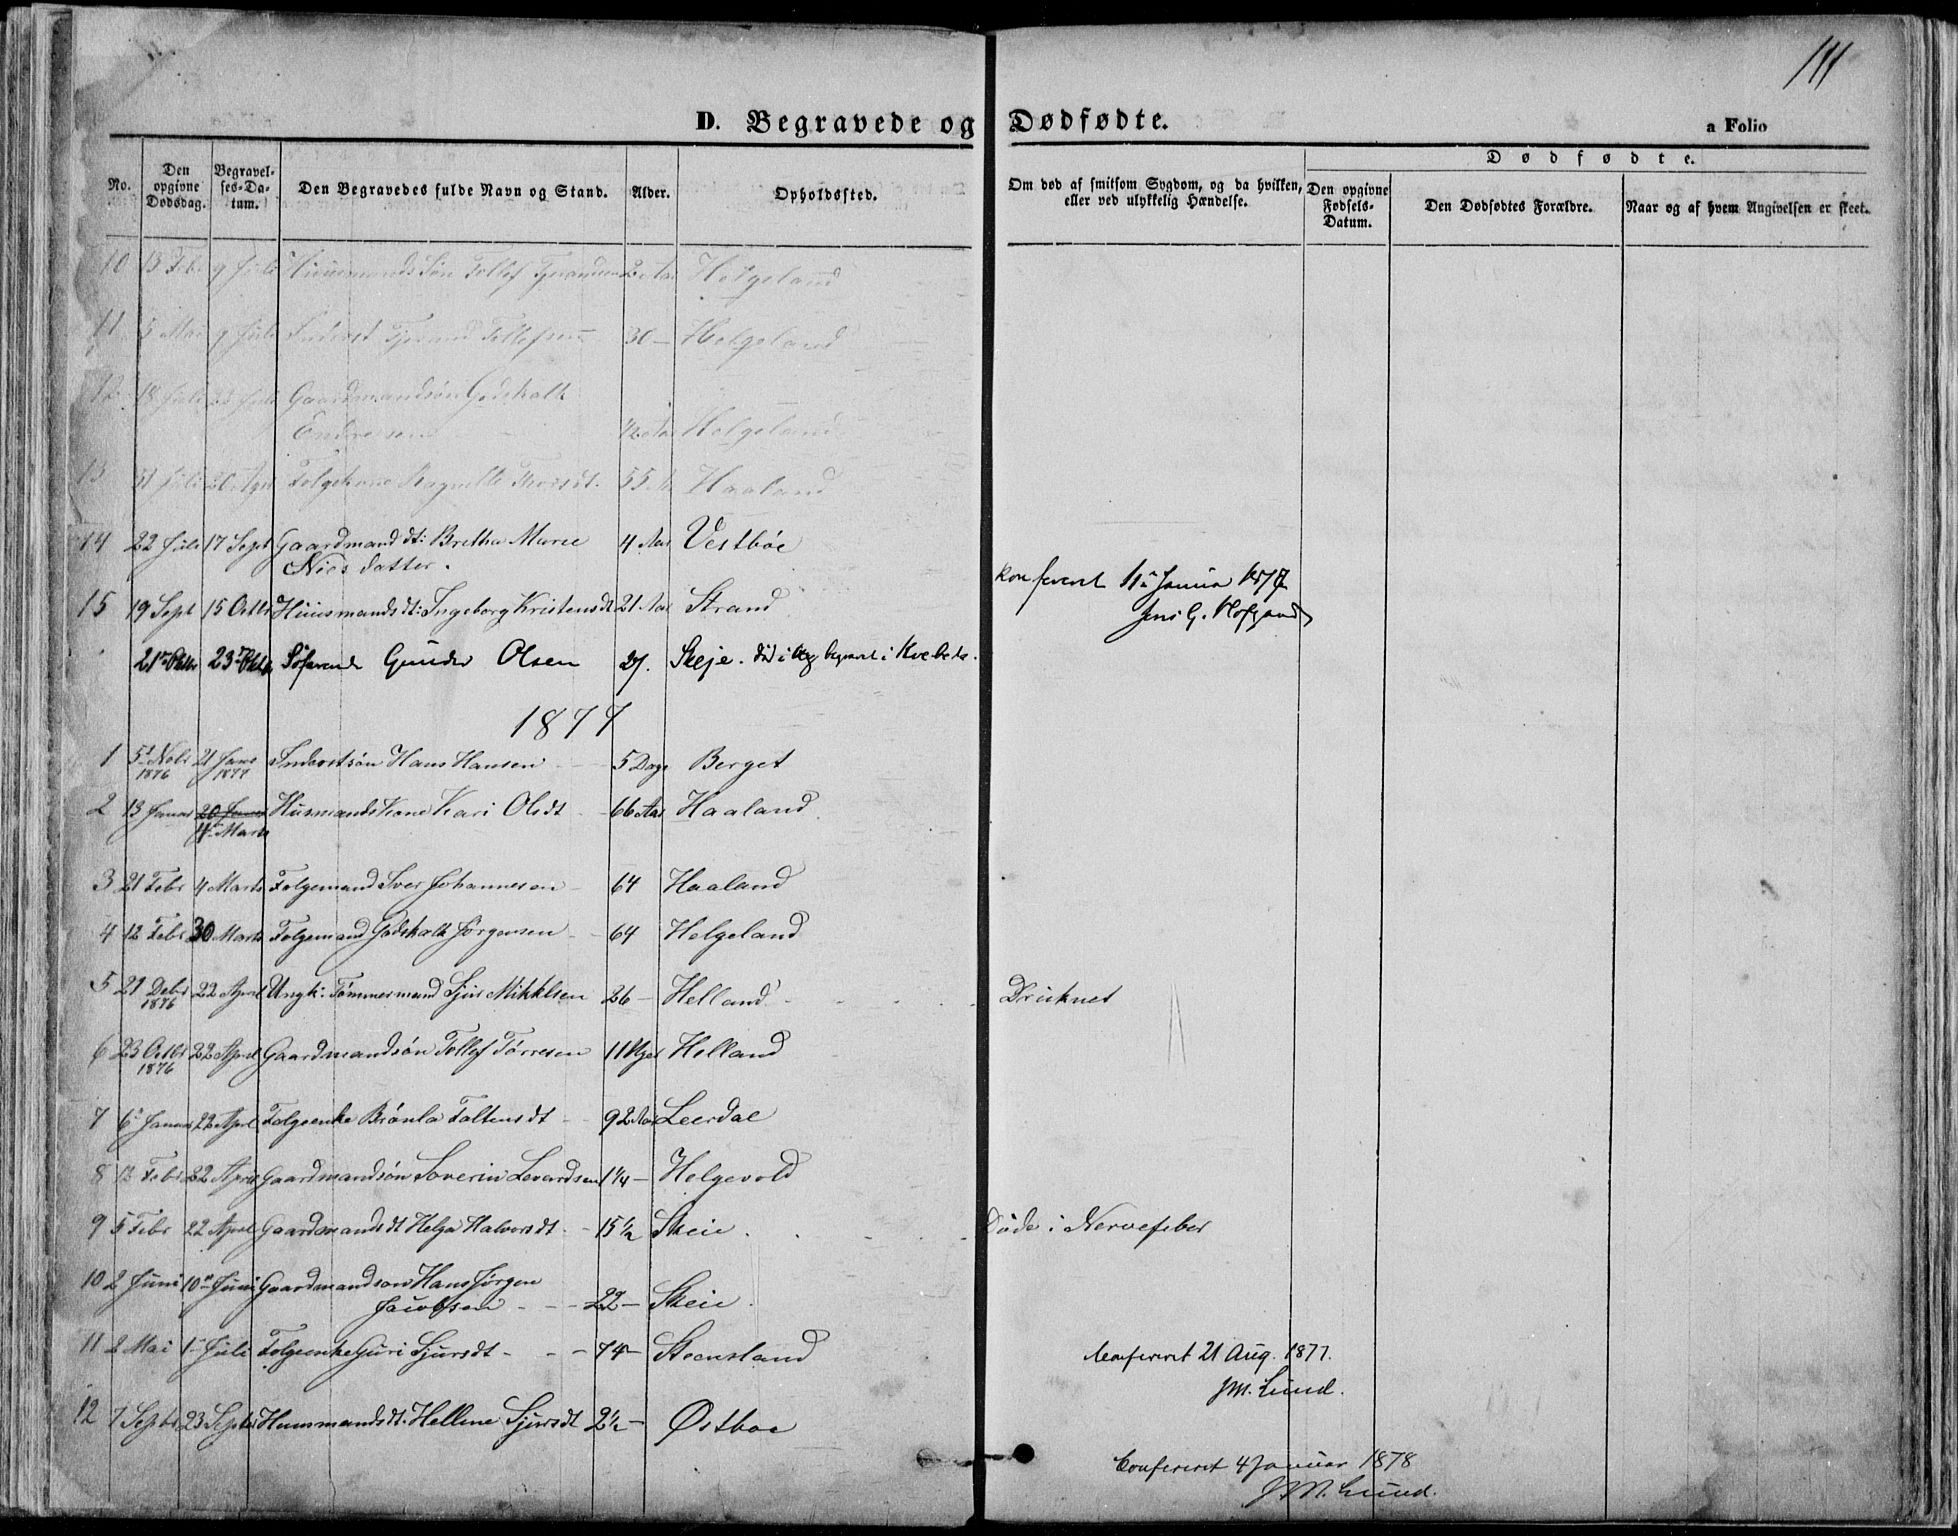 111
D. Begravede og Dødfødte.
a Folio
No. Den opgivne Dødsdag. Begravelses-Datum. Den Begravedes fulde Navn og Stand. Alder. Opholdssted. Om død af smitsom Sygdom, og da hvilken, eller ved ulykkelig Hændelse. Dødfødte. Den opgivne Fødsels-Datum. Den Dødfødtes Forældre. Naar og af hvem Angivelsen er skeet.
10 13 Febr 9 Juli Huusmands Søn Tollef 2 Aar Helgeland
11 5 Mai 9 Juli Inderst Tollefsen 30 — Helgeland
12 18 Juli 23 Juli Gaardmandsøn Godskalk
Endresen Helgeland
13 31 Juli 20 Agst Folgekone 55 A Haaland
14 22 Juli 17 Sept Gaardmand dt: Bretha Marie 4 Aar Vestbøe
Nies datter.
konfereret 11te Januar 1877
15 19 Sept 15 Octbr Huusmandsdt: Ingeborg Kristensdt 21 Aar Strand
Jens G.
21de Oktbr 23de Oktbr Søfarende Gunder Olsen 27. Skeje. død i og begravet i
1877
1 5te Nobr 1876 21 Janr 1877 Inderstsøn Hans Hansen 5 Dage Berget
2 13 Januar 20 Januar 4de Marts Husmands Kone Kari Olsdt 66 Aar Haaland
3 21 Febr 4 Marts Folgemand Iver Johannesen 64 Haaland
4 12 Febr 30 Marts Folgemand Godskalk Jørgensen 64 Helgeland
5 27 Debr 1876 22 April Ungk: Tømmermand Sjur Mikkelsen 26 — Helland Druknet
6 23 Octbr 1876 22 April Gaardmandsøn Tollef Tørresen 11 Uger Helland
7 6te Januar 22 April Folgeenke Brønla Foltensdt 92 Aar Leerdal
8 13 Febr 22 April Gaardmandsøn Soverin Levardsen 1 1/4 — Helgevold
9 5 Febr 22 April Gaardmandsdt Helga Halvorsdt 15 1/2 Skeie. Døde i Nervefeber
10 2 Juni 10de Juni Gaardmandsøn Hans Jørgen
Jacobsen 22 — Skeie.
11 2 Mai 1te Juli Folgeenke Guri Sjursdt 74 — Steensland Confereret 21 Aug. 1877.
JM. Lund.
12 7 Septr 23 Septr Huusmandsdt: Hellene Sjursdt 2 1/2 — Østboe
Confereret 4 Januar 1878
J.M. Lund.